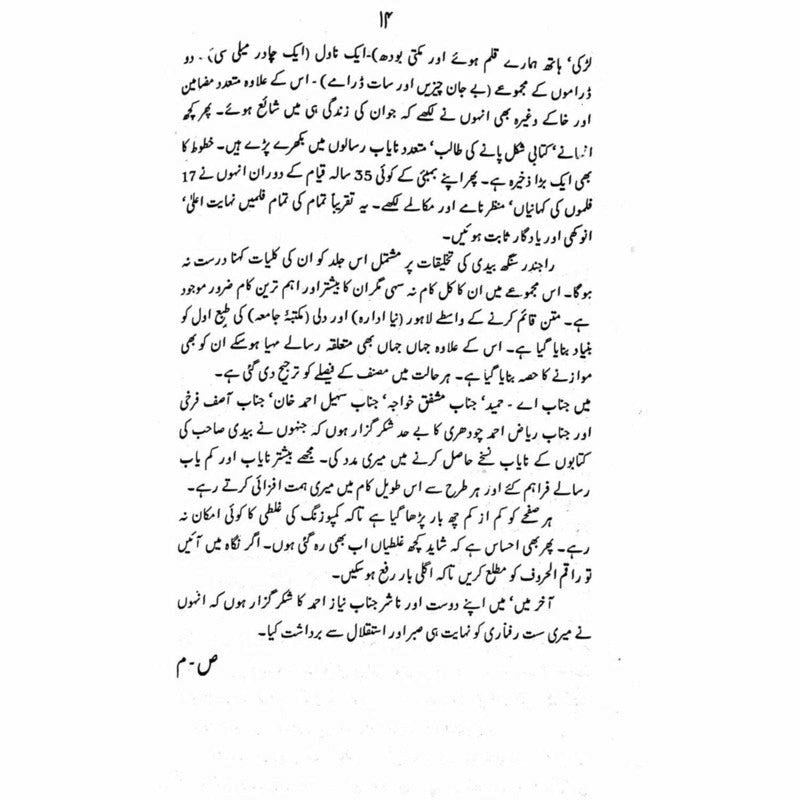 ۱۴
لڑکی‘ ہاتھ ہمارے قلم ہوئے اور مکتی بودھ)-ایک ناول (ایک چادر میلی سی) - دو
ڈراموں کے مجموعے (بے جان چیزیں اور سات ڈرامے) - اس کے علاوہ متعدد مضامین
اور خاکے وغیرہ بھی انہوں نے لکھے کہ جو ان کی زندگی ہی میں شائع ہوئے۔ پھر کچھ
افسانے‘ کتابی شکل پانے کی طالب‘ متعدد نایاب رسالوں میں بکھرے پڑے ہیں۔ خطوط کا
بھی ایک بڑا ذخیرہ ہے۔ پھر اپنے بمبئی کے کوئی 35 سالہ قیام کے دوران انہوں نے 17
فلموں کی کہانیاں‘ منظر نامے اور مکالے لکھے۔ یہ تقریباً تمام کی تمام فلمیں نہایت اعلیٰ‘
انوکھی اور یادگار ثابت ہوئیں۔
راجندر سنگھ بیدی کی تخلیقات پر مشتمل اس جلد کو ان کی کلیات کہنا درست نہ
ہوگا۔ اس مجموعے میں ان کا کل کام نہ سہی مگر ان کا بیشتر اور اہم ترین کام ضرور موجود
ہے۔ متن قائم کرنے کے واسطے لاہور (نیا ادارہ) اور دلی (مکتبۂ جامعہ) کی طبع اول کو
بنیاد بنایا گیا ہے۔ اس کے علاوہ جہاں جہاں بھی متعلقہ رسالے مہیا ہوسکے ان کو بھی
موازنے کا حصہ بنایا گیا ہے۔ ہر حالت میں مصنف کے فیصلے کو ترجیح دی گئی ہے۔
میں جناب اے - حمید‘ جناب مشفق خواجہ‘ جناب سہیل احمد خان‘ جناب آصف فرخی
اور جناب ریاض احمد چودھری کا بے حد شکر گزار ہوں کہ جنہوں نے بیدی صاحب کی
کتابوں کے نایاب نسخے حاصل کرنے میں میری مدد کی۔ مجھے بیشتر نایاب اور کم یاب
رسالے فراہم کئے اور ہر طرح سے اس طویل کام میں میری ہمت افزائی کرتے رہے۔
ہر صفحے کو کم از کم چھ بار پڑھا گیا ہے تاکہ کمپوزنگ کی غلطی کا کوئی امکان نہ
رہے۔ پھر بھی احساس ہے کہ شاید کچھ غلطیاں اب بھی رہ گئی ہوں۔ اگر نگاہ میں آئیں
تو راقم الحروف کو مطلع کریں تاکہ اگلی بار رفع ہوسکیں۔
آخر میں‘ میں اپنے دوست اور ناشر جناب نیاز احمد کا شکر گزار ہوں کہ انہوں
نے میری ست رفتاری کو نہایت ہی صبر اور استقلال سے برداشت کیا۔
ص - م